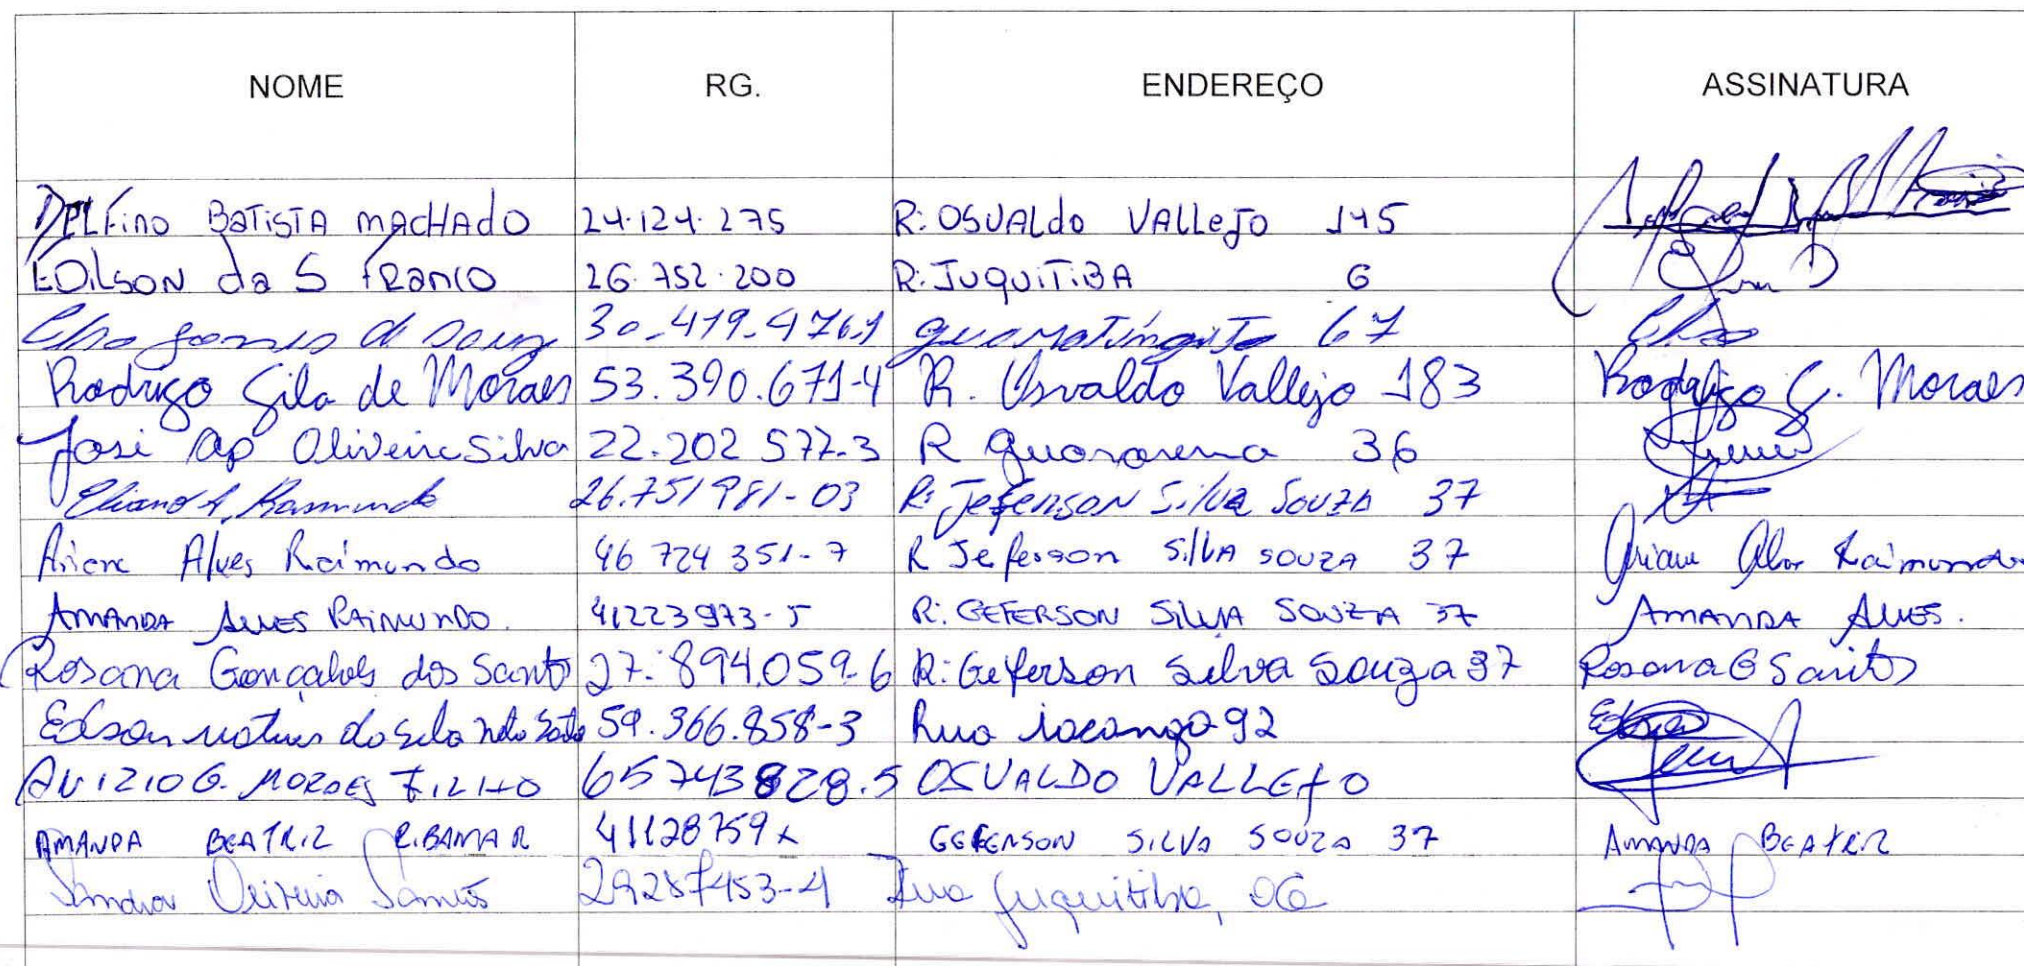 NOME RG. ENDEREÇO ASSINATURA
DELFino BATiSTA MACHAdO 24.124.275 R: OSVALdo VALLEJO 145
EDiLSON da S FRanco 26.752.200 R: JUQUiTiBA 6
gomes d Souz 30.419.476.1 guaratinguita 67
Rodrigo Gila de Moraes 53.390.671-4 R. Osvaldo Vallejo 183 Rodrigo G. Moraes
José ap Oliveira Silva 22.202 577-3 R guararema 36
Eliand A. Raimundo 26.751981-03 R: JefeRSON SiLVa SouZA 37
Ariane Alves Raimundo 46 724 351-7 R Jeferson SilVA SOUZA 37 Ariane Alves Raimundo
AMANDA ALVES RAIMUNDO. 41223973-5 R: GEFERSON SILVA SOUZA 37 AMANDA ALVES.
Rosana Gonçalves dos Santos 27.894.059-6 R: Geferson Silva Souza 37 Rosana G Santos
Edson 59.366.858-3 Rua iacanga 92
G. MORAES FILHO 65743828.5 OSVALDO VALLEJO
AMANDA BEATRIZ RIBAMAR 41128759x GEFERSON SILVA SOUZA 37 AMANDA BEATRIZ
Sandra Oliveira Santos 29287453-4 Rua Juquitiba, 06